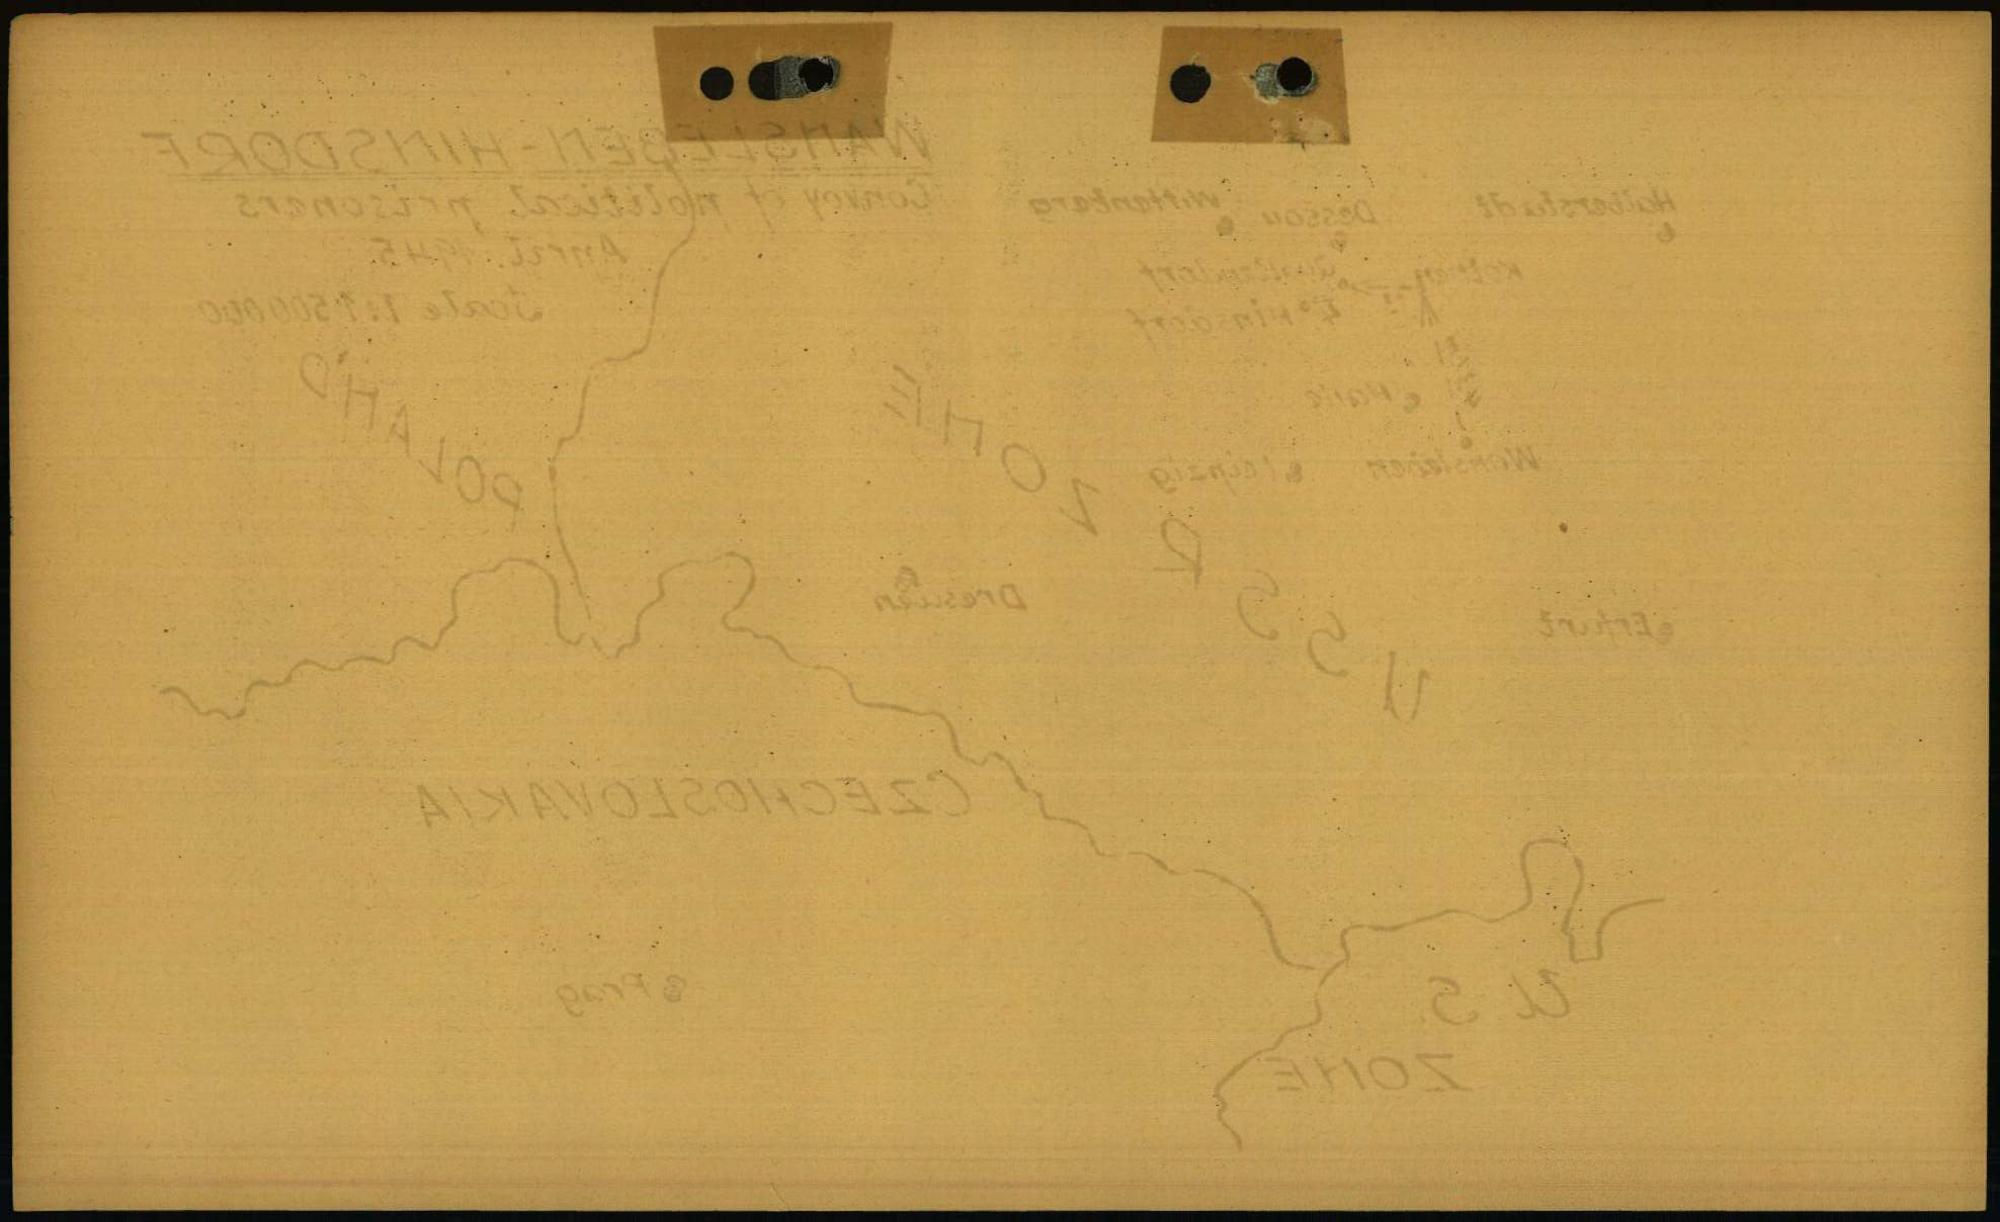 WANSLEBEN - HINSDORF
Convoy of political prisoners
April 1945
Scale 1:1500000
Halberstadt
Dessau
Wittenberg
Köthen
Quellendorf
Hinsdorf
Halle
Wansleben
Leipzig
Erfurt
Dresden
USSR ZONE
POLAND
CZECHOSLOVAKIA
Prag
U.S.
ZONE